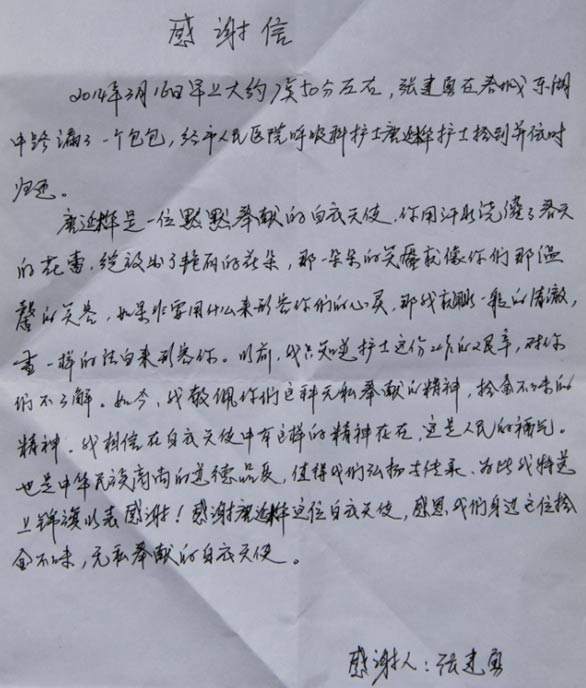 感谢信
2014年3月16日早上大约7点50分左右，张建勇在春城东湖
中路漏了一个包包，经市人民医院呼吸科护士唐延辉护士捡到并依时
归还。
唐延辉是一位默默奉献的白衣天使，你用汗水浇灌了春天
的花蕾，绽放出了艳丽的花朵，那一朵朵的笑靥就像你们那温
馨的笑容，如果非要用什么来形容你们的心灵，那我就眼一般的清澈，
雪一样的洁白来形容你。以前，我只知道护士这份工作的艰辛，对你
们不了解。如今，我敬佩你们这种无私奉献的精神，拾金不昧的
精神。我相信在白衣天使中有这样的精神存在，这是人民的福气。
也是中华民族高尚的道德品质，值得我们弘扬与传承。为此我特送
上锦旗以表感谢！感谢唐延辉这位白衣天使，感恩我们身边这位拾
金不昧，无私奉献的白衣天使。
感谢人：张建勇